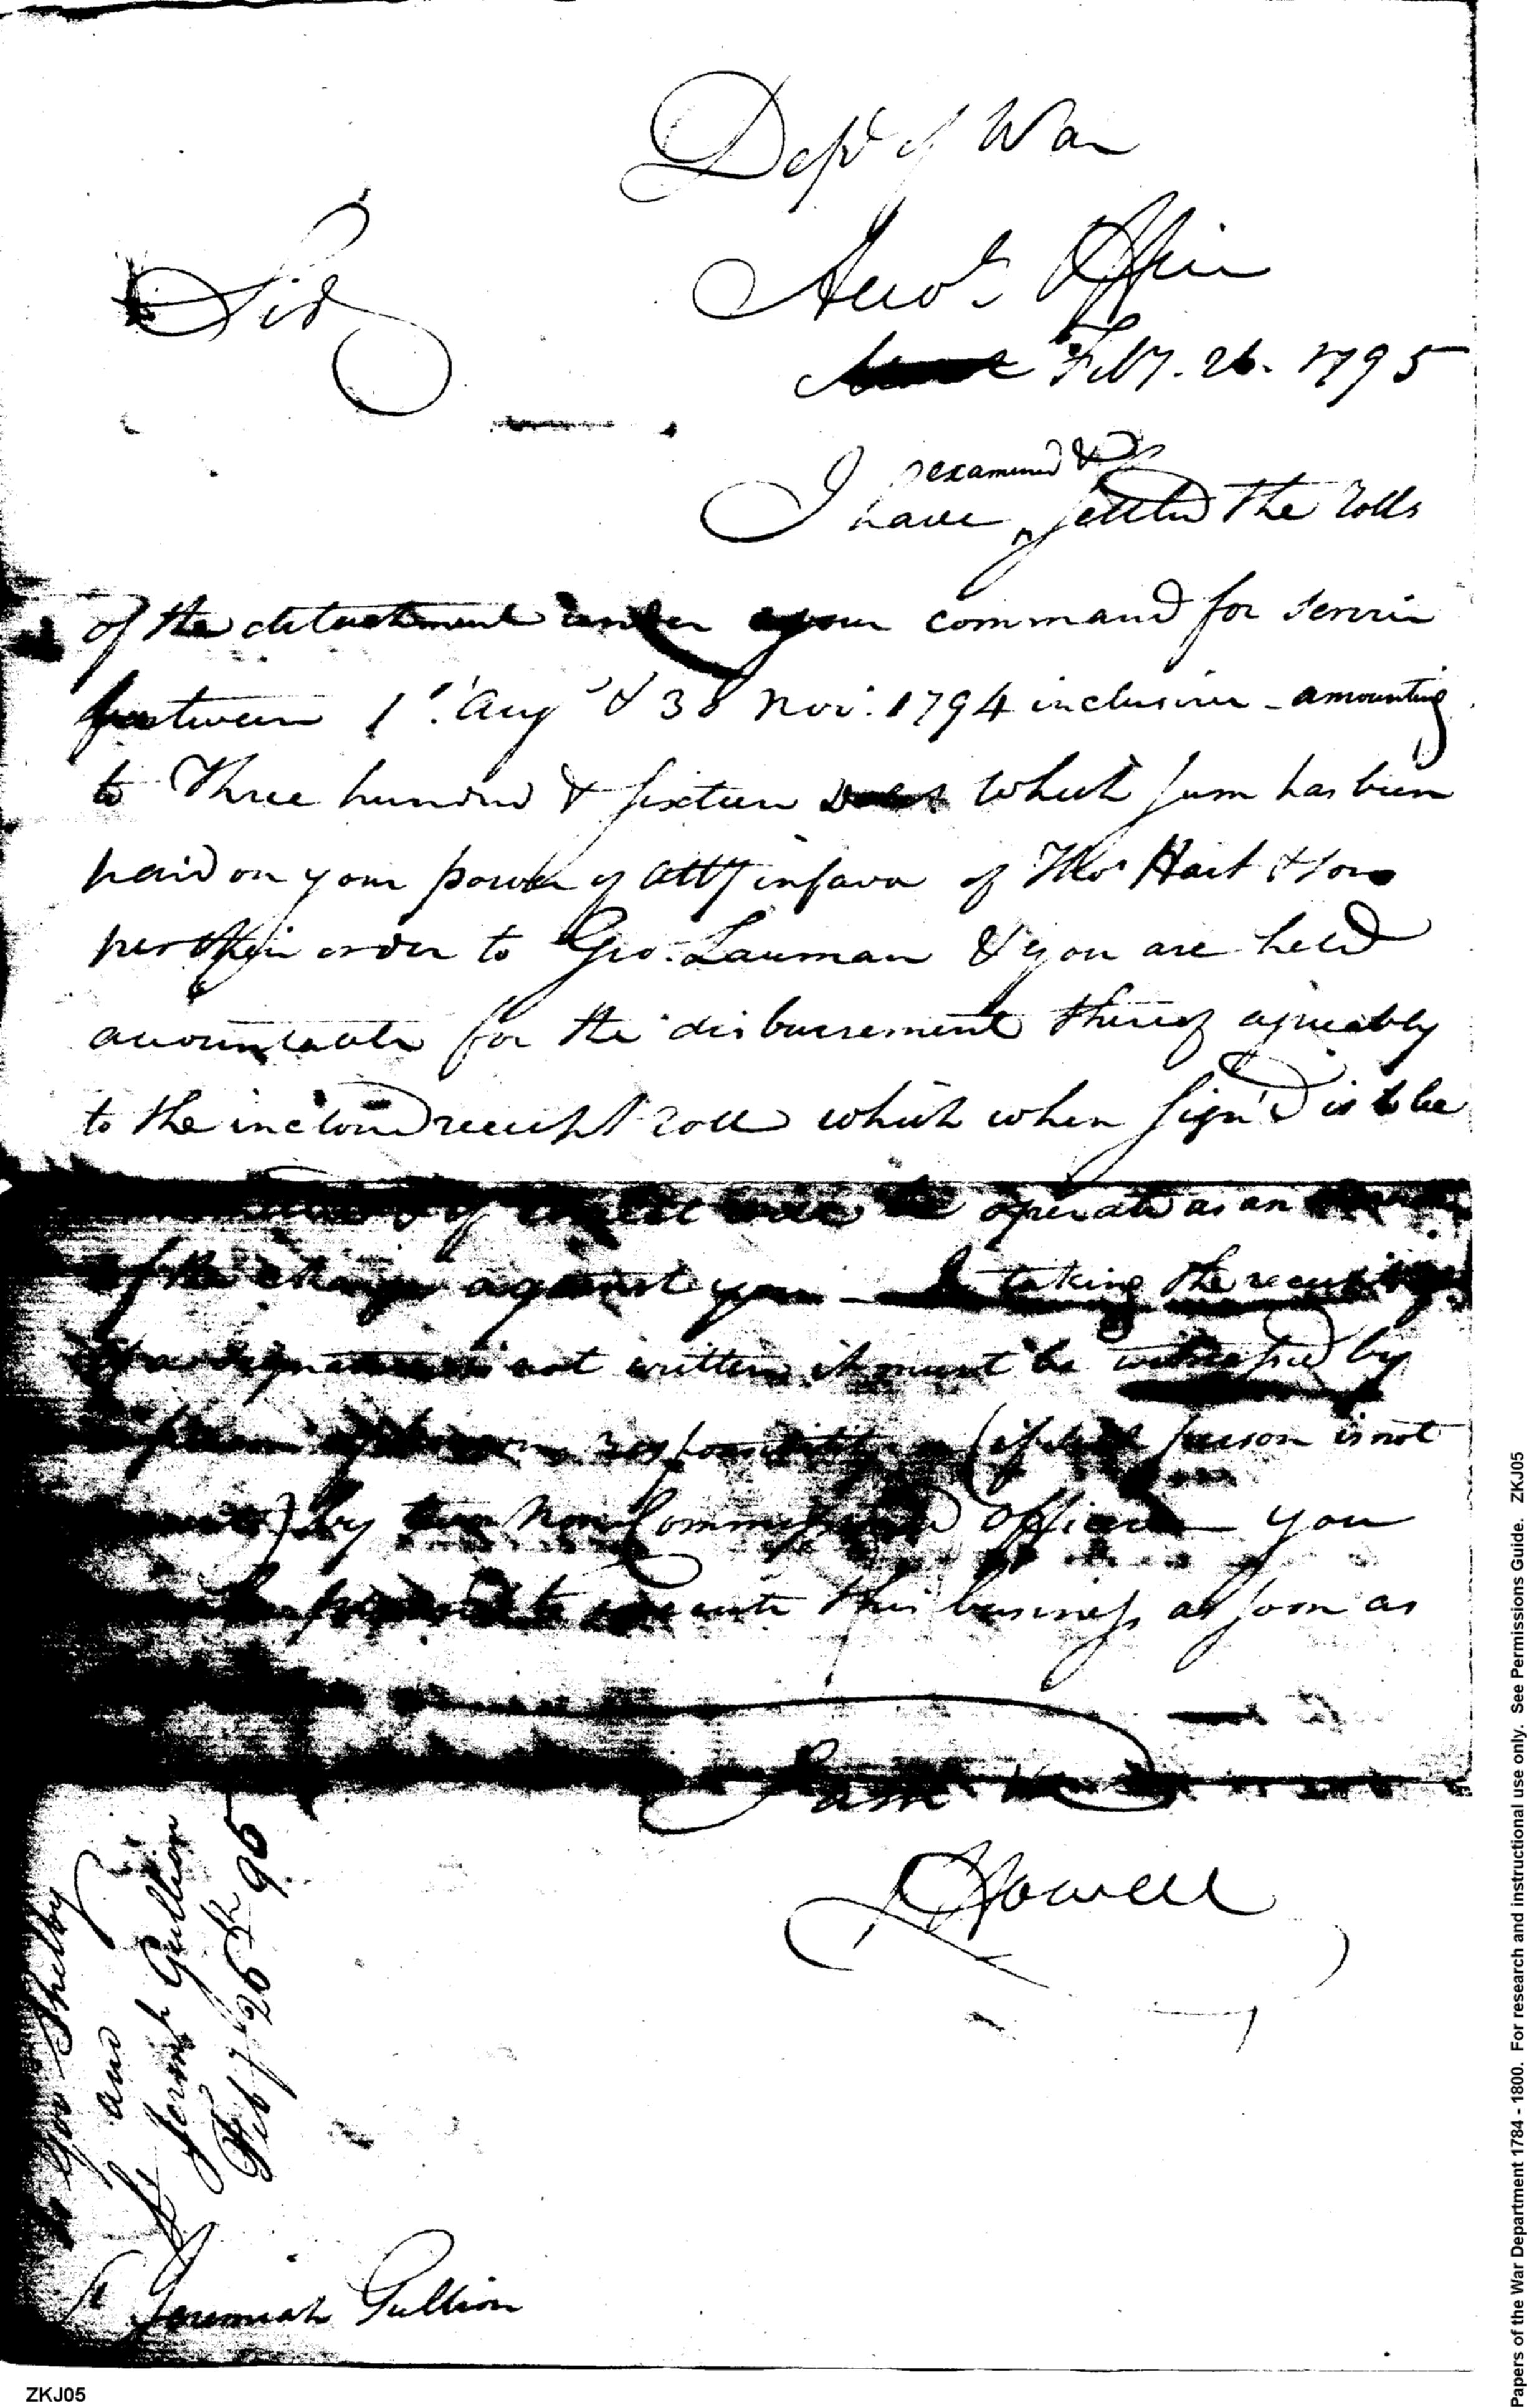 Dept of War
Accots Office
Sir
Feby. 26. 1795
I have examined & settled the rolls
of the detachment under your command for service
between 1st Aug & 30 Nov: 1794 inclusive - amounting
to Three hundred & sixteen Dolls which sum has been
paid on your power of Atty in favor of Thos Hart & Son
per their order to Geo. Lauman & you are held
accountable for the disbursement thereof agreeably
to the inclosed receipt roll which when sign'd is to be
operate as an
of the charge against you - In taking the receipts
if a signature is not written it must be witnessed by
responsibility (if such person is not
) by two Non Commissioned Officers you
to execute this business as soon as
I am
J Howell
Gov Shelby
and
Jeremh Gullion
Feby 26th 95
Jeremiah Gullion
ZKJ05
Papers of the War Department 1784 - 1800. For research and instructional use only. See Permissions Guide. ZKJ05